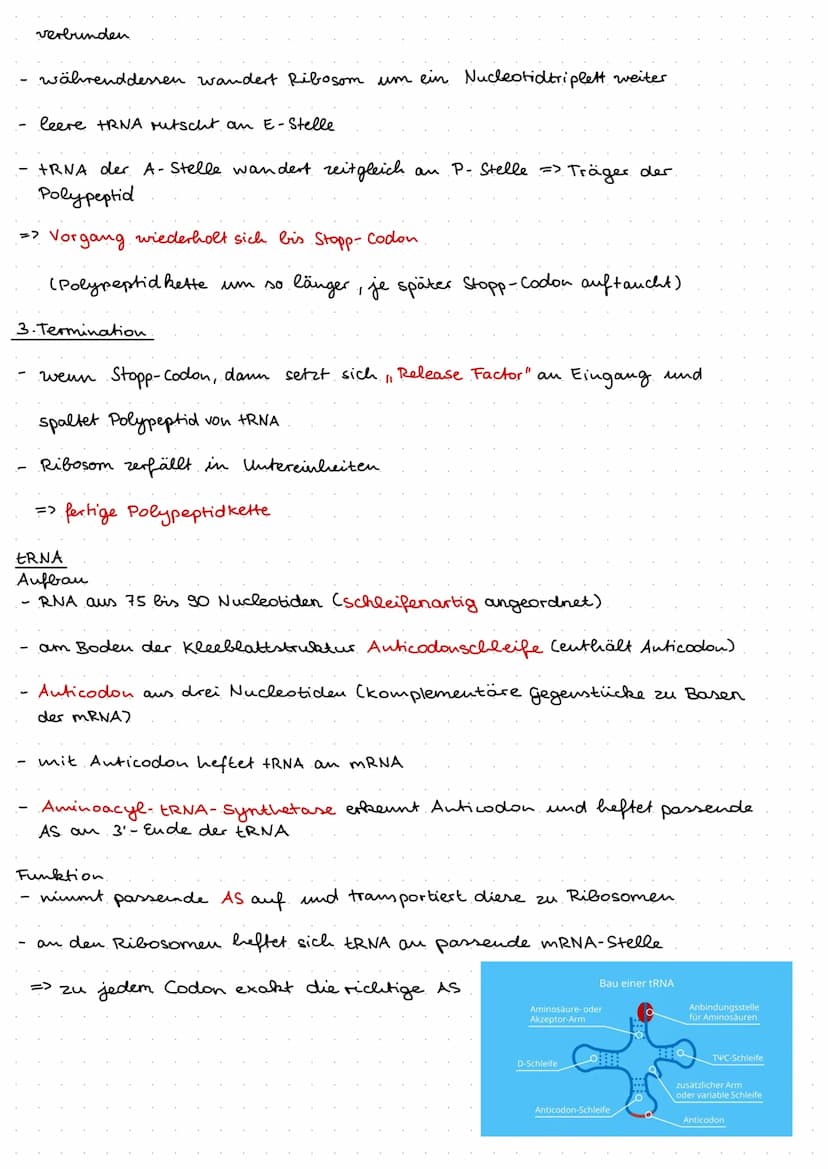 verbunden
- währenddessen wandert Ribosom um ein Nucleotidtriplett weiter
- leere tRNA rutscht an E-Stelle
- tRNA der A-Stelle wandert zeitgleich an P-Stelle => Träger der
Polypeptid
=> Vorgang wiederholt sich bis Stopp-Codon
(Polypeptidkette um so länger, je später Stopp-Codon auftaucht)
3. Termination
- wenn Stopp-Codon, dann setzt sich „Release Factor" an Eingang und
spaltet Polypeptid von tRNA
- Ribosom zerfällt in Untereinheiten
=> fertige Polypeptidkette
tRNA
Aufbau
- RNA aus 75 bis 90 Nucleotiden (schleifenartig angeordnet)
- am Boden der Kleeblattstruktur Anticodonschleife (enthält Anticodon)
- Anticodon aus drei Nucleotiden (komplementäre Gegenstücke zu Basen
der mRNA)
- mit Anticodon heftet tRNA an mRNA
- Aminoacyl-tRNA-Synthetase erkennt Anticodon und heftet passende
AS an 3'-Ende der tRNA
Funktion
- nimmt passende AS auf und transportiert diese zu Ribosomen
- an den Ribosomen heftet sich tRNA an passende mRNA-Stelle
=> zu jedem Codon exakt die richtige AS
Bau einer tRNA
Aminosäure- oder
Akzeptor-Arm
Anbindungsstelle
für Aminosäuren
D-Schleife
TΨC-Schleife
zusätzlicher Arm
oder variable Schleife
Anticodon-Schleife
Anticodon